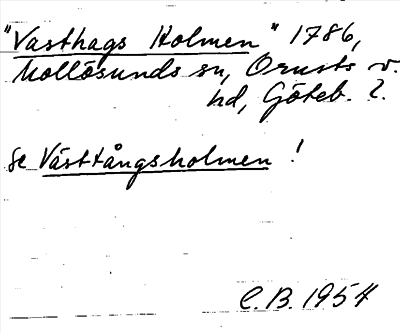 "Vasthags Holmen" 1786,
Mollösunds sn, Orusts v.
hd, Göteb. l.
Se Västtångsholmen!
C.B. 1954